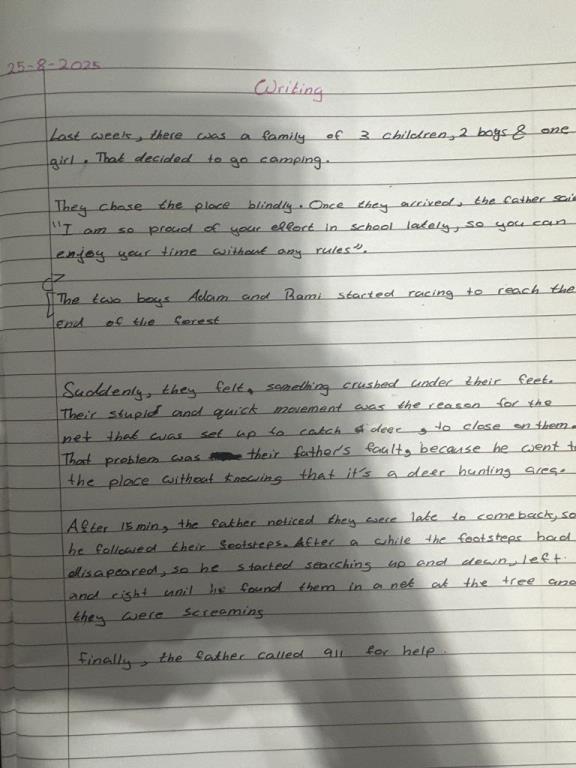 25-8-2025
Writing
Last week, there was a family of 3 children, 2 boys & one
girl. That decided to go camping.
They chose the place blindly. Once they arrived, the father sai
"I am so proud of your effort in school lately, so you can
enjoy your time without any rules".
The two boys Adam and Rami started racing to reach the
end of the forest
Suddenly, they felt, something crushed under their feet.
Their stupid and quick movement was the reason for the
net that was set up to catch a deer, to close on them.
That problem was their father's fault, because he went t
the place without knowing that it's a deer hunting area.
After 15 min, the father noticed they were late to comeback, so
he followed their footsteps. After a while the footsteps had
disapeared, so he started searching up and down, left
and right unil he found them in a net at the tree and
they were screaming
finally, the father called 911 for help.